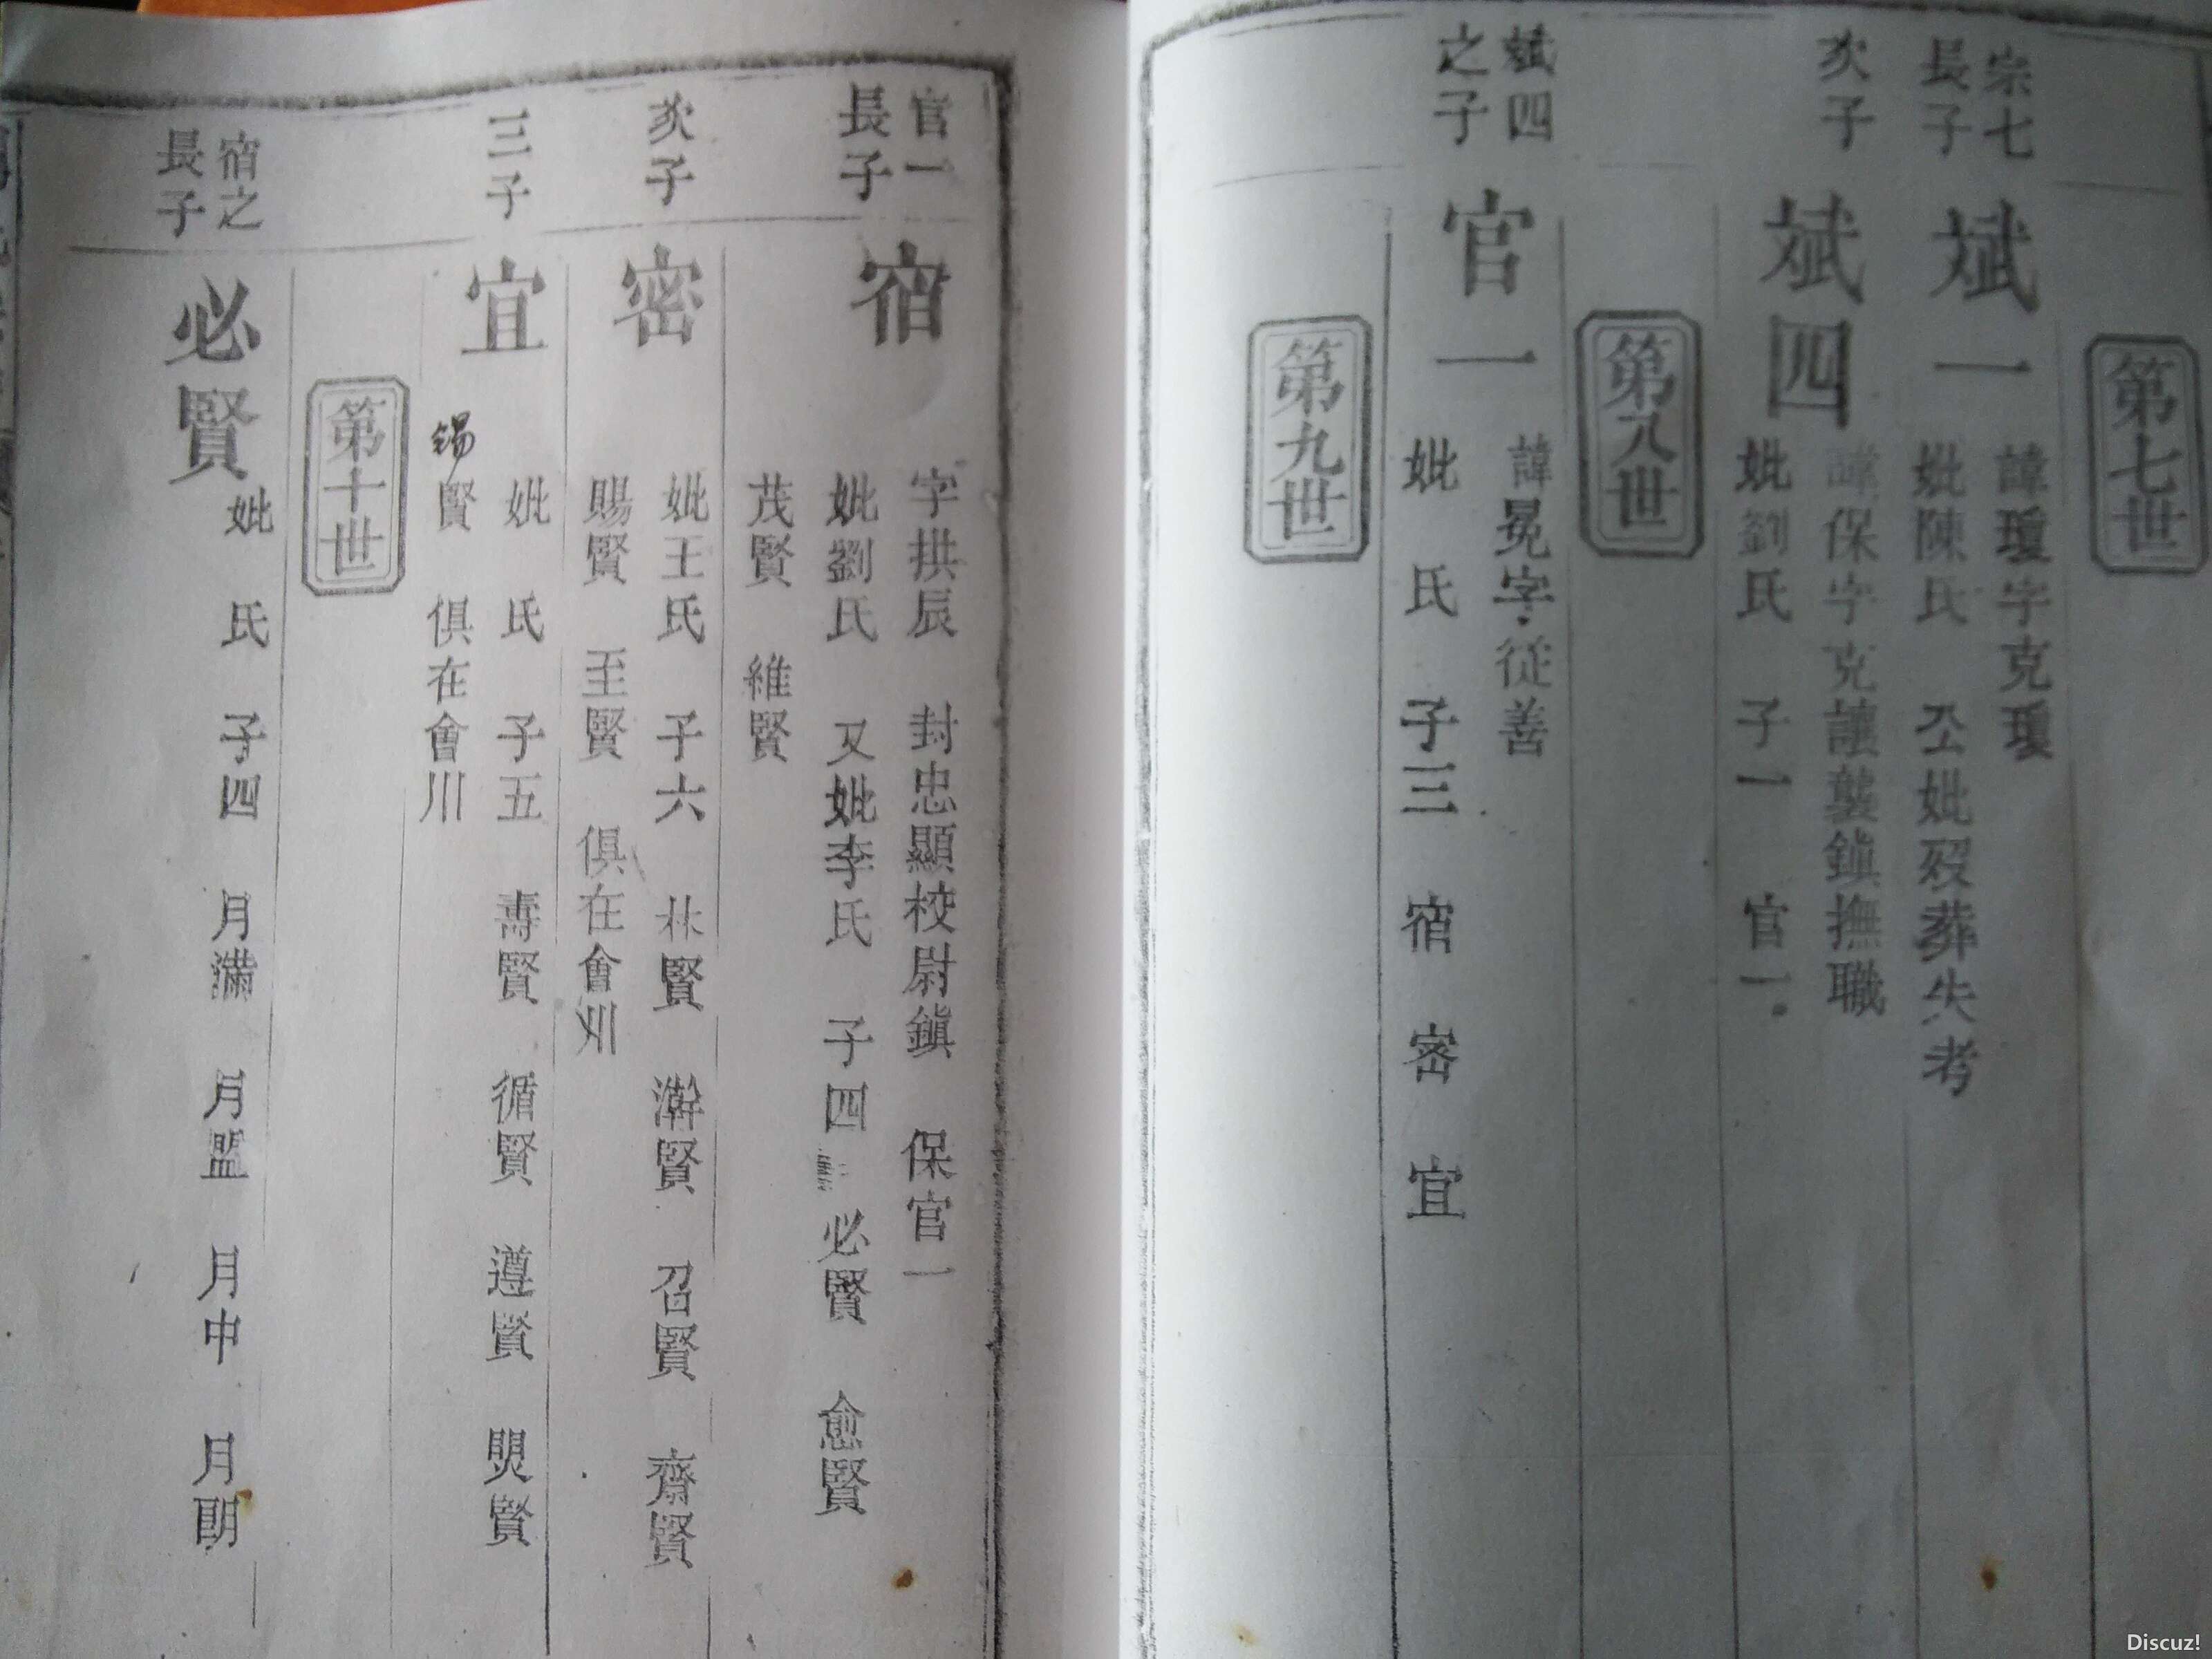 第七世
宗七
長子
斌一
諱瓊字克瓊
妣陳氏 公妣歿葬失考
次子
斌四
諱保字克讓襲鎮撫職
妣劉氏 子一 官一
第八世
斌四
之子
官一
諱冕字從善
妣 氏 子三 宿 密 宜
第九世
官一
長子
宿
字拱辰 封忠顯校尉鎮 保官一
妣劉氏 又妣李氏 子四 必賢 愈賢
茂賢 維賢
次子
密
妣王氏 子六 林賢 澣賢 召賢 齋賢
賜賢 至賢 俱在會川
三子
宜
妣 氏 子五 壽賢 循賢 遵賢 賢
錫賢 俱在會川
第十世
宿之
長子
必賢
妣 氏 子四 月滿 月盟 月中 月朗
Discuz!